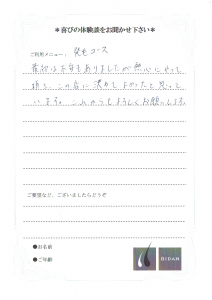 ＊喜びの体験談をお聞かせ下さい＊
ご利用メニュー： 発毛コース
最初は不安もありましたが熱心にやって
頂き、この店に決めてよかったと思って
います。これからもよろしくお願いします。
ご要望など、ございましたらどうぞ
●お名前
●ご年齢
BIDAN